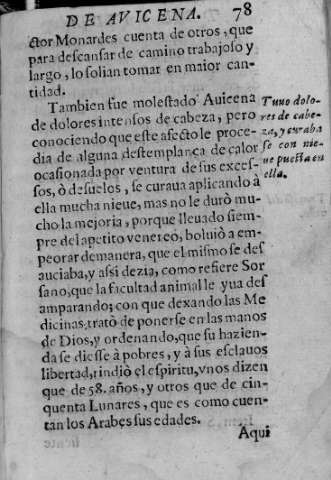 DE AVICENA. 78
ctor Monardes cuenta de otros, que
para descansar de camino trabajoso y
largo, lo solian tomar en maior can-
tidad.
Tambien fue molestado Auicena
de dolores intensos de cabeza, pero
conociendo que este afecto le proce-
dia de alguna destemplança de calor
ocasionada por ventura de sus exces-
sos, ò desuelos, se curaua aplicando à
ella mucha nieue, mas no le durò mu-
cho la mejoria, porque lleuado siem-
pre del apetito venereo, boluiò a em-
peorar demanera, que el mismo se des
auciaba, y assi dezia, como refiere Sor
sano, que la facultad animal le yua des
amparando; con que dexando las Me
dicinas, tratò de ponerse en las manos
de Dios, y ordenando, que su hazien-
da se diesse à pobres, y à sus esclauos
libertad, rindiò el espiritu, vnos dizen
que de 58. años, y otros que de cin-
quenta Lunares, que es como cuen-
tan los Arabes sus edades.
Aqui
Tuuo dolo-
res de cabe-
za, y curaba
se con nie-
ue puesta en
ella.